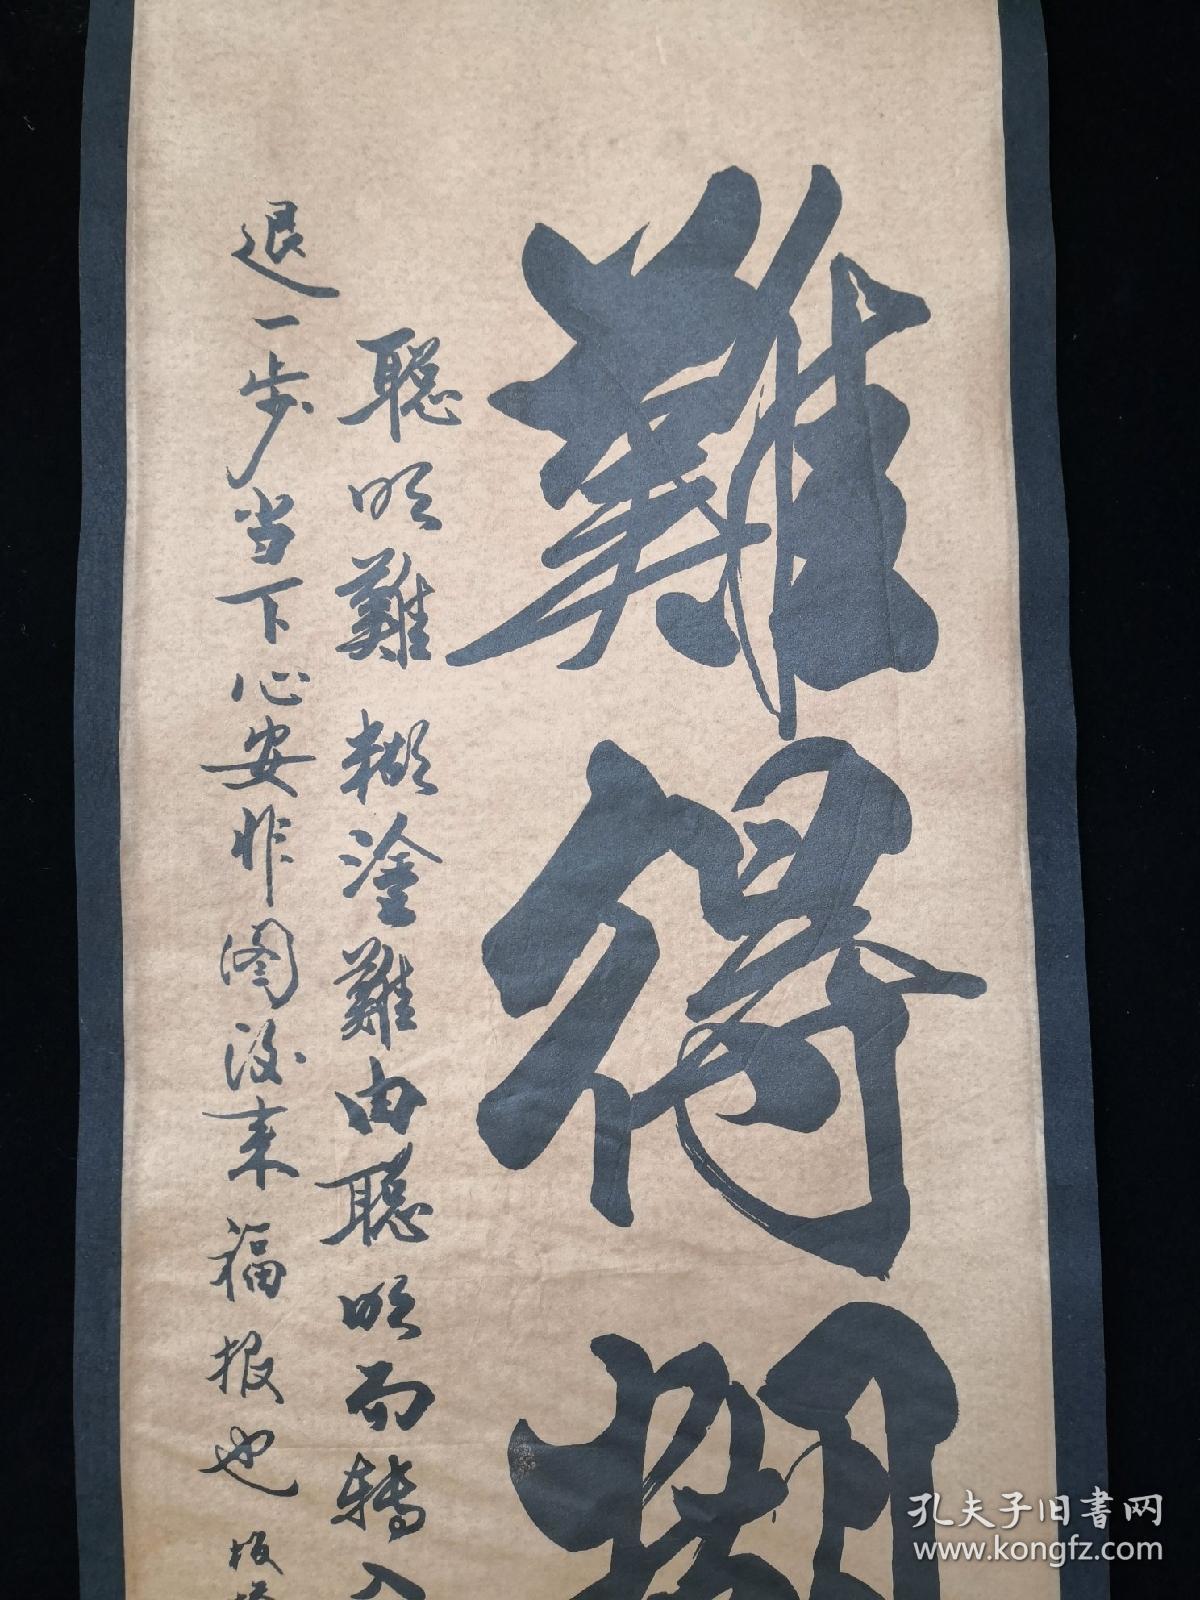 難得糊
聪明難糊塗難由聪明而转入
退一步当下心安非图後来福报也板桥
孔夫子旧書网
www.kongfz.com